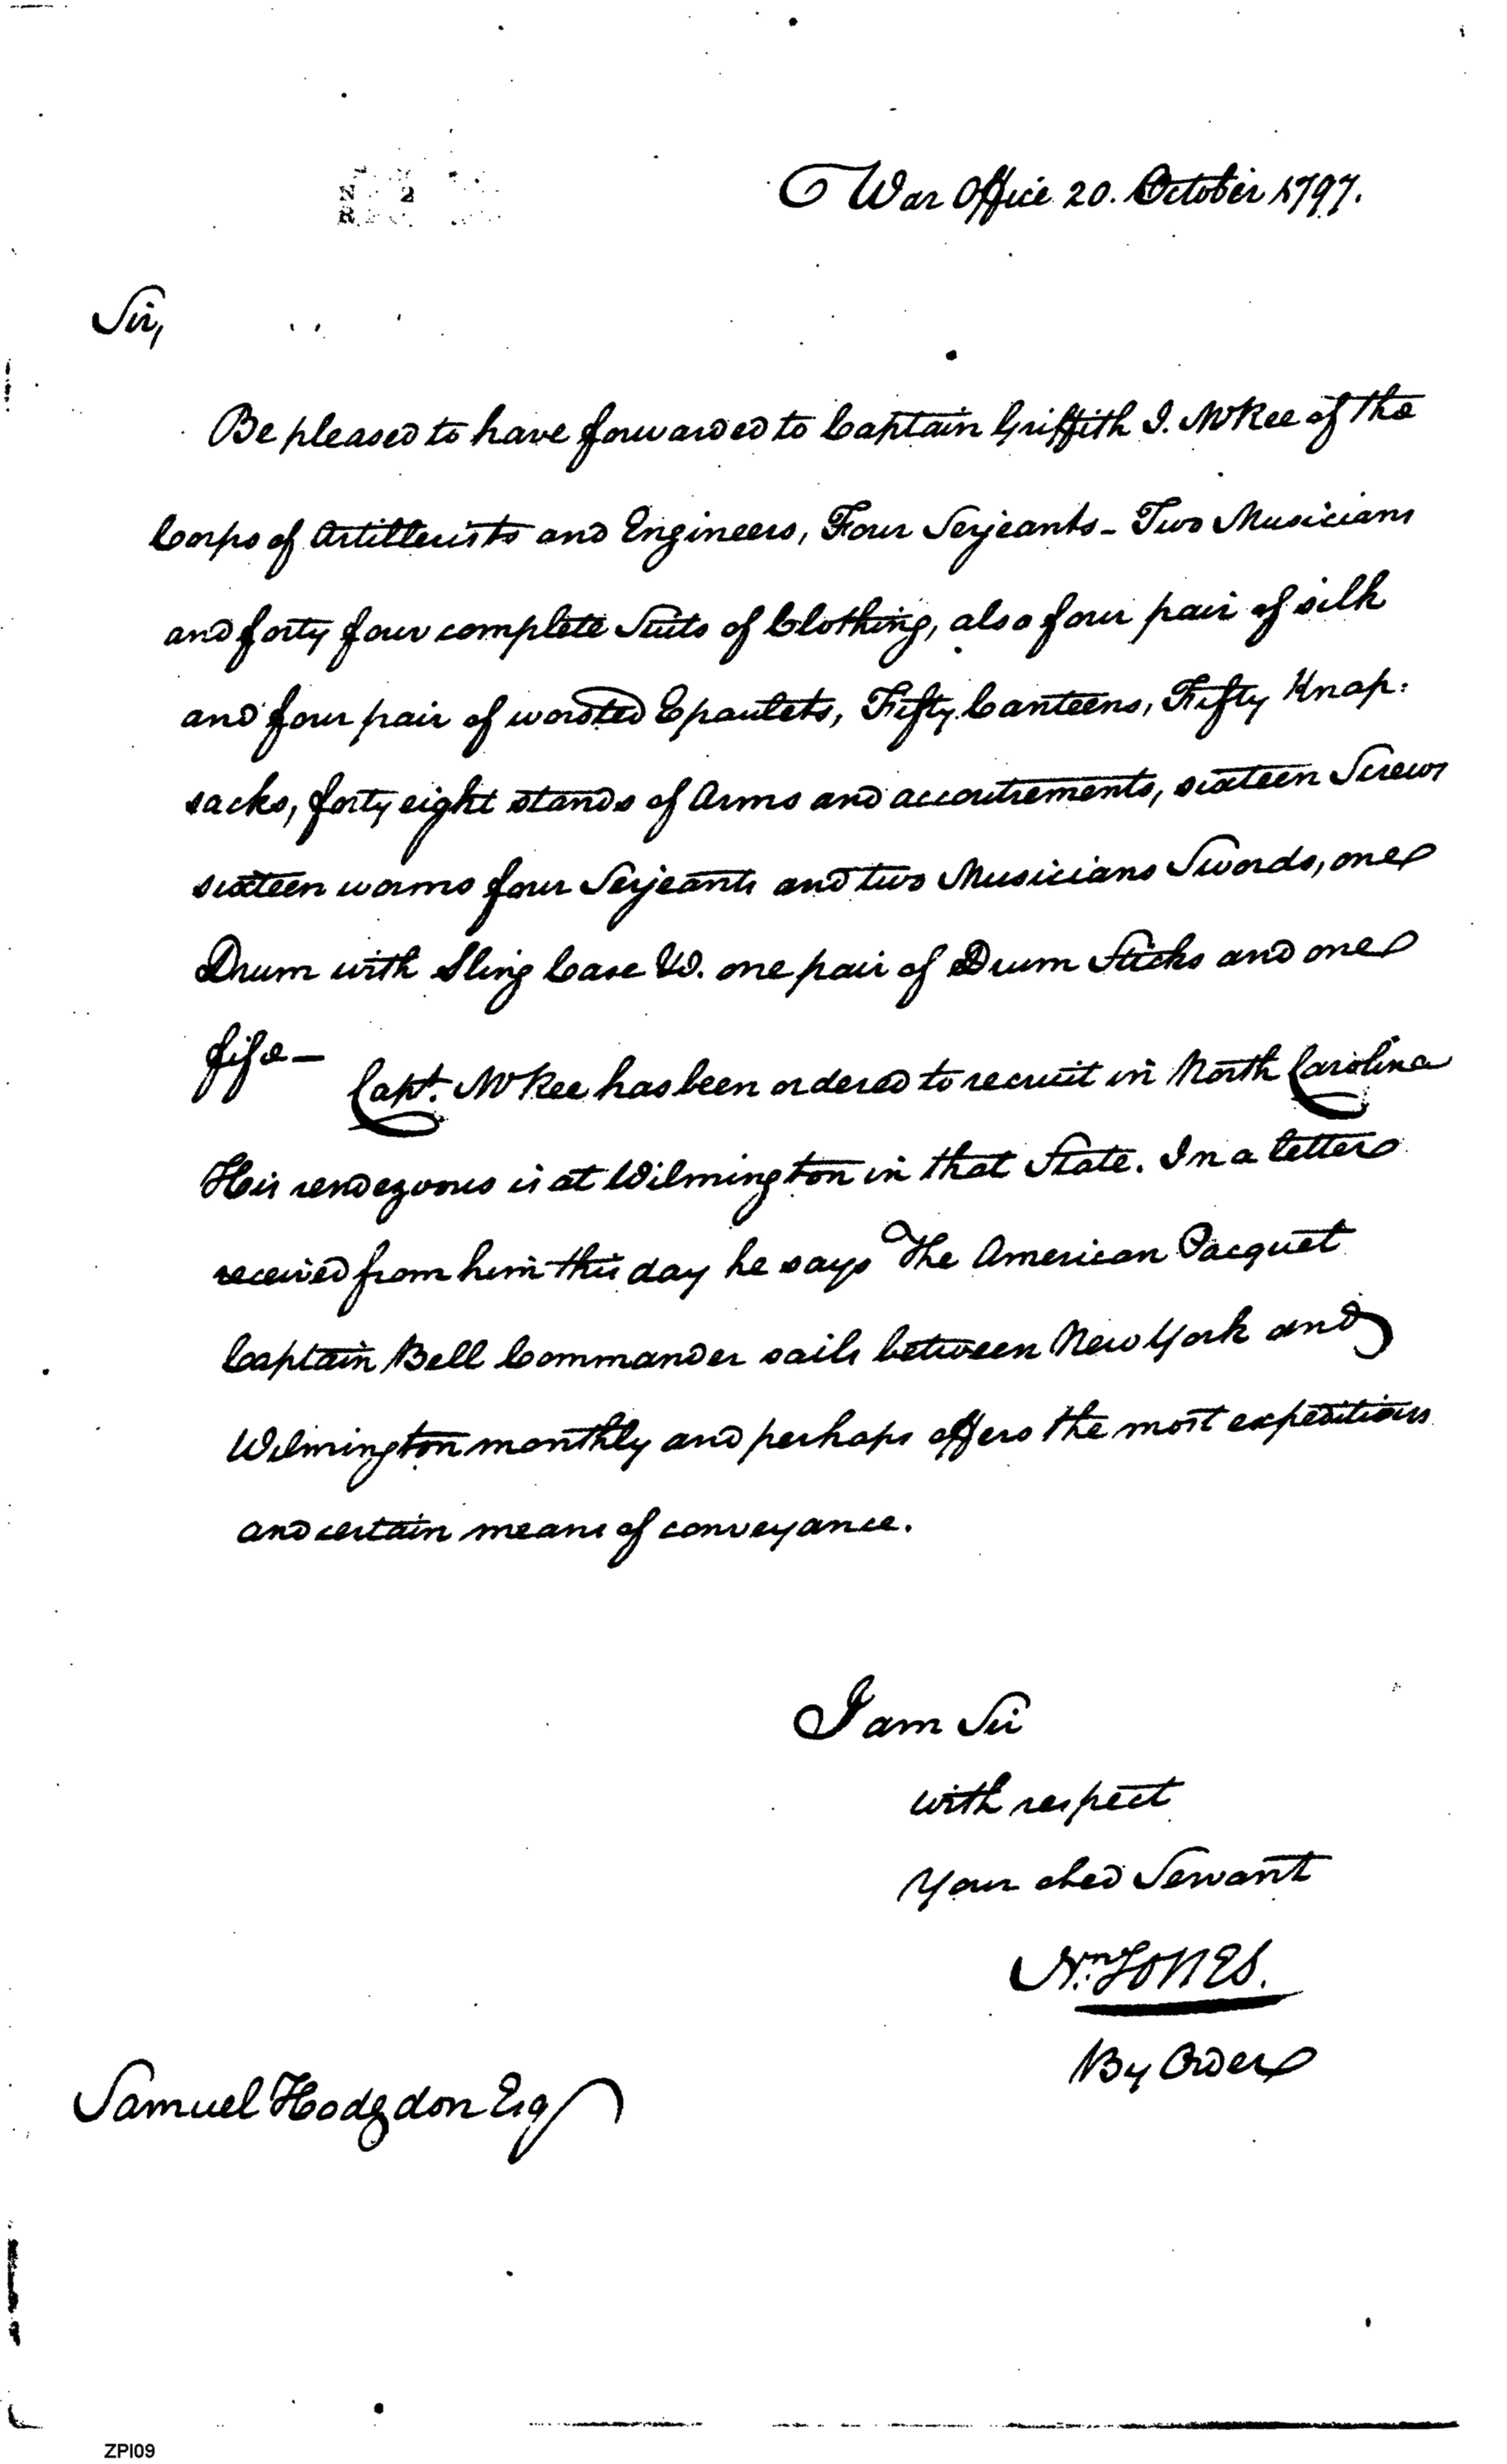 War Office 20. October 1797.
Sir,
Be pleased to have forwarded to Captain Griffith J. McKee of the
Corps of Artillerists and Engineers, Four Serjeants - Two Musicians
and forty four complete Suits of Clothing, also four pair of silk
and four pair of worsted Epaulets, Fifty Canteens, Fifty Knap:
sacks, forty eight stands of Arms and accoutrements, sixteen Screws
sixteen worms four Serjeants and two Musicians Swords, one
Drum with Sling Case &c. one pair of Drum Sticks and one
fife —
Capt. McKee has been ordered to recruit in North Carolina
His rendezvous is at Wilmington in that State. In a letter
received from him this day he says The American Pacquet
Captain Bell Commander sails between New York and
Wilmington monthly and perhaps offers the most expeditious
and certain means of conveyance.
I am Sir
with respect
Your obed Servant
Wm JONES.
By Order
Samuel Hodgdon Esq
ZPI09